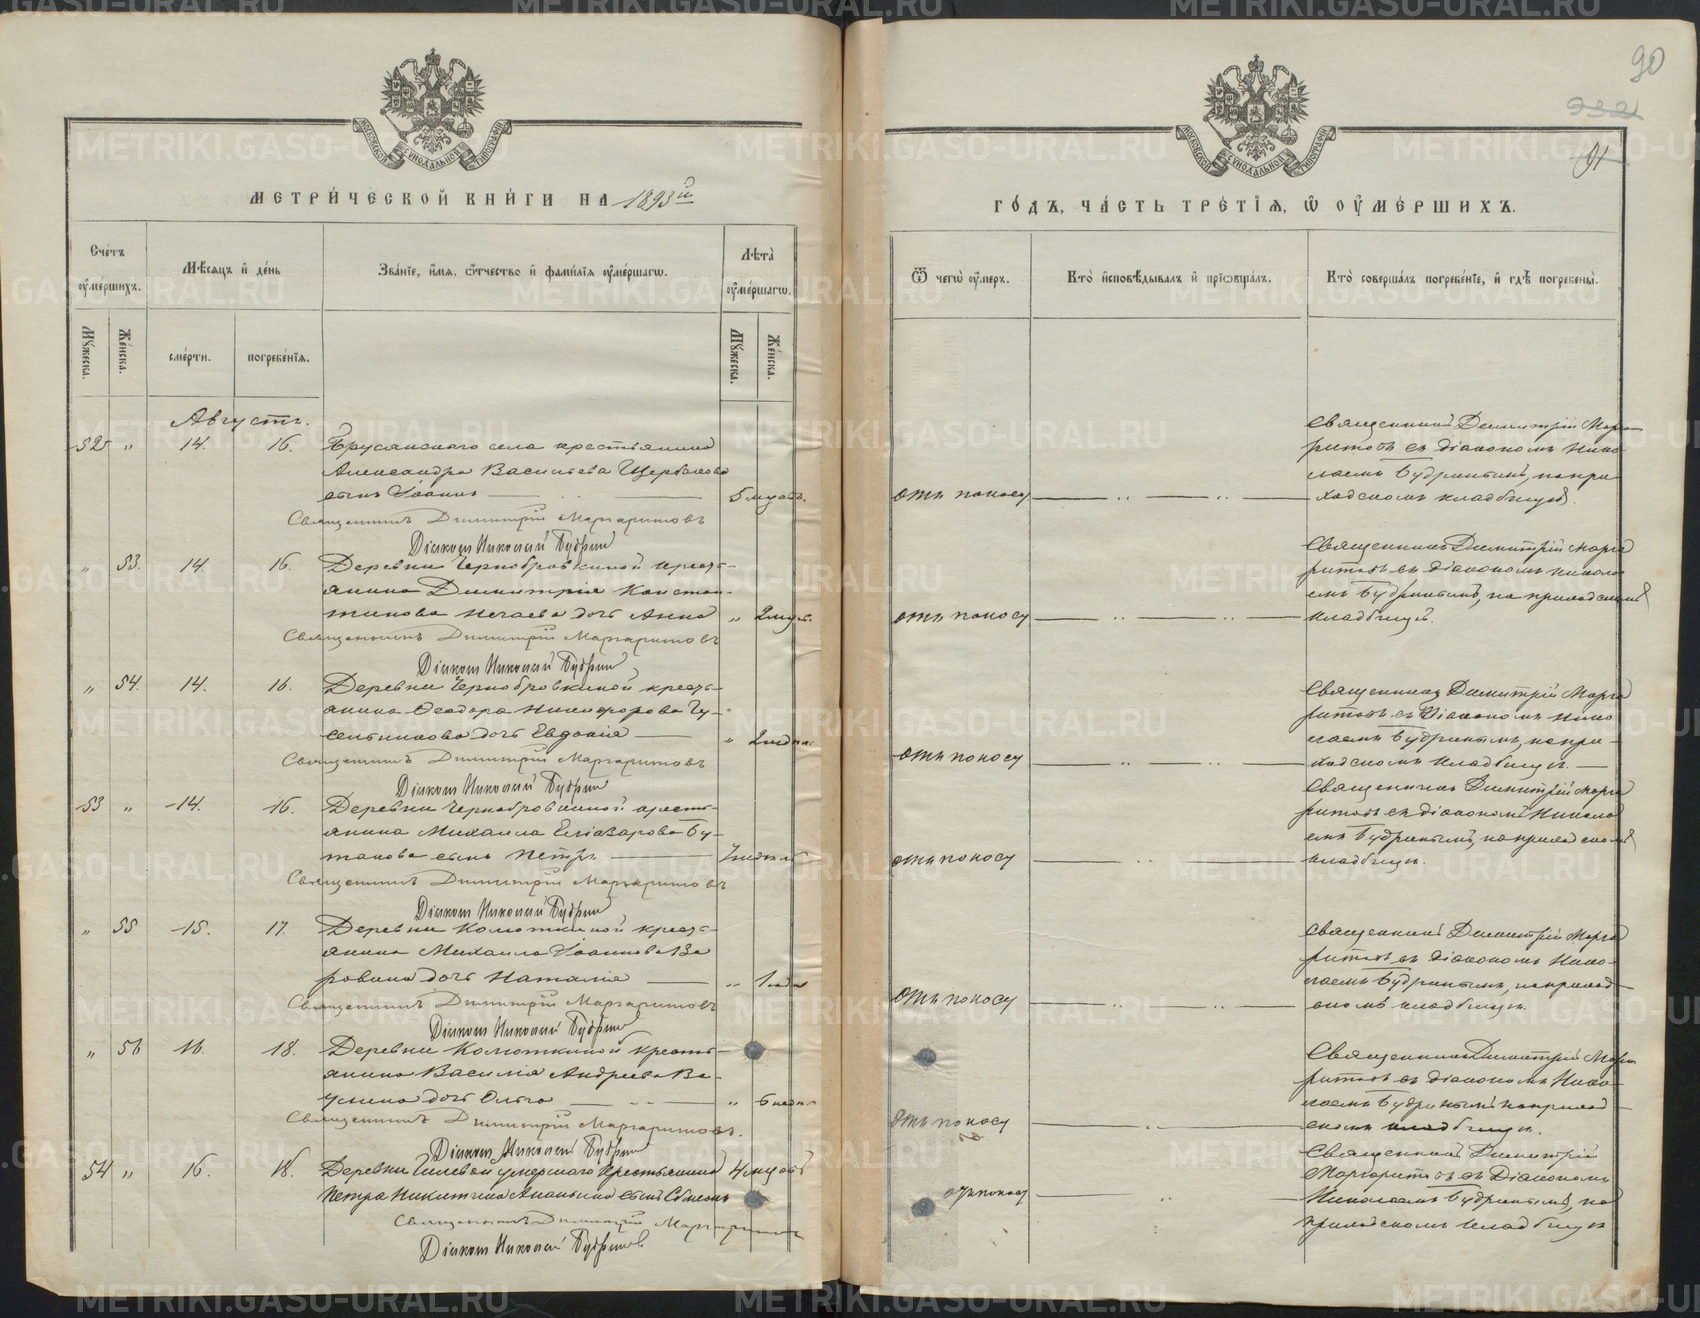 90
932
91
МОСКОВСКОЙ СѴНОДАЛЬНОЙ ТИПОГРАФІИ
МЕТРИ́ЧЕСКОЙ КНИ́ГИ НА 1893й
Сче́тъ оу҆ме́ршихъ.
Мѣ́сяцъ и҆ де́нь
Зва́нїе, и҆́мя, ѻ҆́тчество и҆ фами́лїя оу҆ме́ршагѡ.
Лѣта̀ оу҆ме́ршагѡ.
Мꙋ́жеска.
Же́нска.
сме́рти.
погребе́нїя.
Мꙋ́жеска.
Же́нска.
Августъ.
52 „ 14. 16. Брусянскаго села крестьянина
Александра Васильева Щербакова
сынъ Іоаннъ 5 мцовъ.
Священникъ Димитрій Маргаритовъ
Діаконъ Николай Будринъ
„ 53. 14. 16. Деревни Чернобровкиной кресть-
янина Димитрія Констан-
тинова Нечаева дочь Анна „ 2
Священникъ Димитрій Маргаритовъ
Діаконъ Николай Будринъ
„ 54. 14. 16. Деревни Чернобровкиной кресть-
янина Ѳеодора Никифорова Гу-
сельникова дочь Евдокія „ 2 недѣли
Священникъ Димитрій Маргаритовъ
Діаконъ Николай Будринъ
53 „ 14. 16. Деревни Чернобровкиной кресть-
янина Михаила Еліазарова Бу-
такова сынъ Петръ
Священникъ Димитрій Маргаритовъ
Діаконъ Николай Будринъ
„ 55 15. 17. Деревни Колюткиной кресть-
янина Михаила Іоаннова
дочь Наталія „ 1
Священникъ Димитрій Маргаритовъ
Діаконъ Николай Будринъ
„ 56 16. 18. Деревни Колюткиной кресть-
янина Василія Андреева
дочь Ольга „ 6
Священникъ Димитрій Маргаритовъ.
Діаконъ Николай Будринъ
54 „ 16. 18. Деревни Гилевой умершаго крестьянина 4 мцовъ
Петра Никитина Ананьина сынъ Симеонъ
Священникъ Димитрій Маргаритовъ
Діаконъ Николай Будринъ
МОСКОВСКОЙ СѴНОДАЛЬНОЙ ТИПОГРАФІИ
ГО́ДЪ, ЧА́СТЬ ТРЕ́ТЇЯ, Ѡ҆ ОУ҆МЕ́РШИХЪ.
Ѿ чегѡ̀ оу҆́меръ.
Кто̀ и҆сповѣ́дывалъ и҆ прїѡбща́лъ.
Кто̀ соверша́лъ погребе́нїе, и҆ гдѣ̀ погребены̀.
Священникъ Димитрій Марга
ритовъ съ діакономъ Нико-
лаемъ Будринымъ, на при
отъ поносу ходскомъ кладбищѣ.
Священникъ Димитрій Марга
ритовъ съ діакономъ Никола
емъ Будринымъ, на приходскомъ
отъ поносу кладбищѣ.
Священникъ Димитрій Марга
ритовъ съ діакономъ Нико
лаемъ Будринымъ, на при-
отъ поносу ходскомъ кладбищѣ.
Священникъ Димитрій Марга
ритовъ съ діакономъ Никола
емъ Будринымъ, на приходскомъ
отъ поносу кладбищѣ.
Священникъ Димитрій Марга
ритовъ съ діакономъ Нико-
лаемъ Будринымъ, на приход-
отъ поносу скомъ кладбищѣ.
Священникъ Димитрій Марга
ритовъ съ діакономъ Нико-
лаемъ Будринымъ на приход-
отъ поносу скомъ кладбищѣ.
Священникъ Димитрій
Маргаритовъ съ діакономъ
отъ поносу Николаемъ Будринымъ, на
приходскомъ кладбищѣ
METRIKI.GASO-URAL.RU